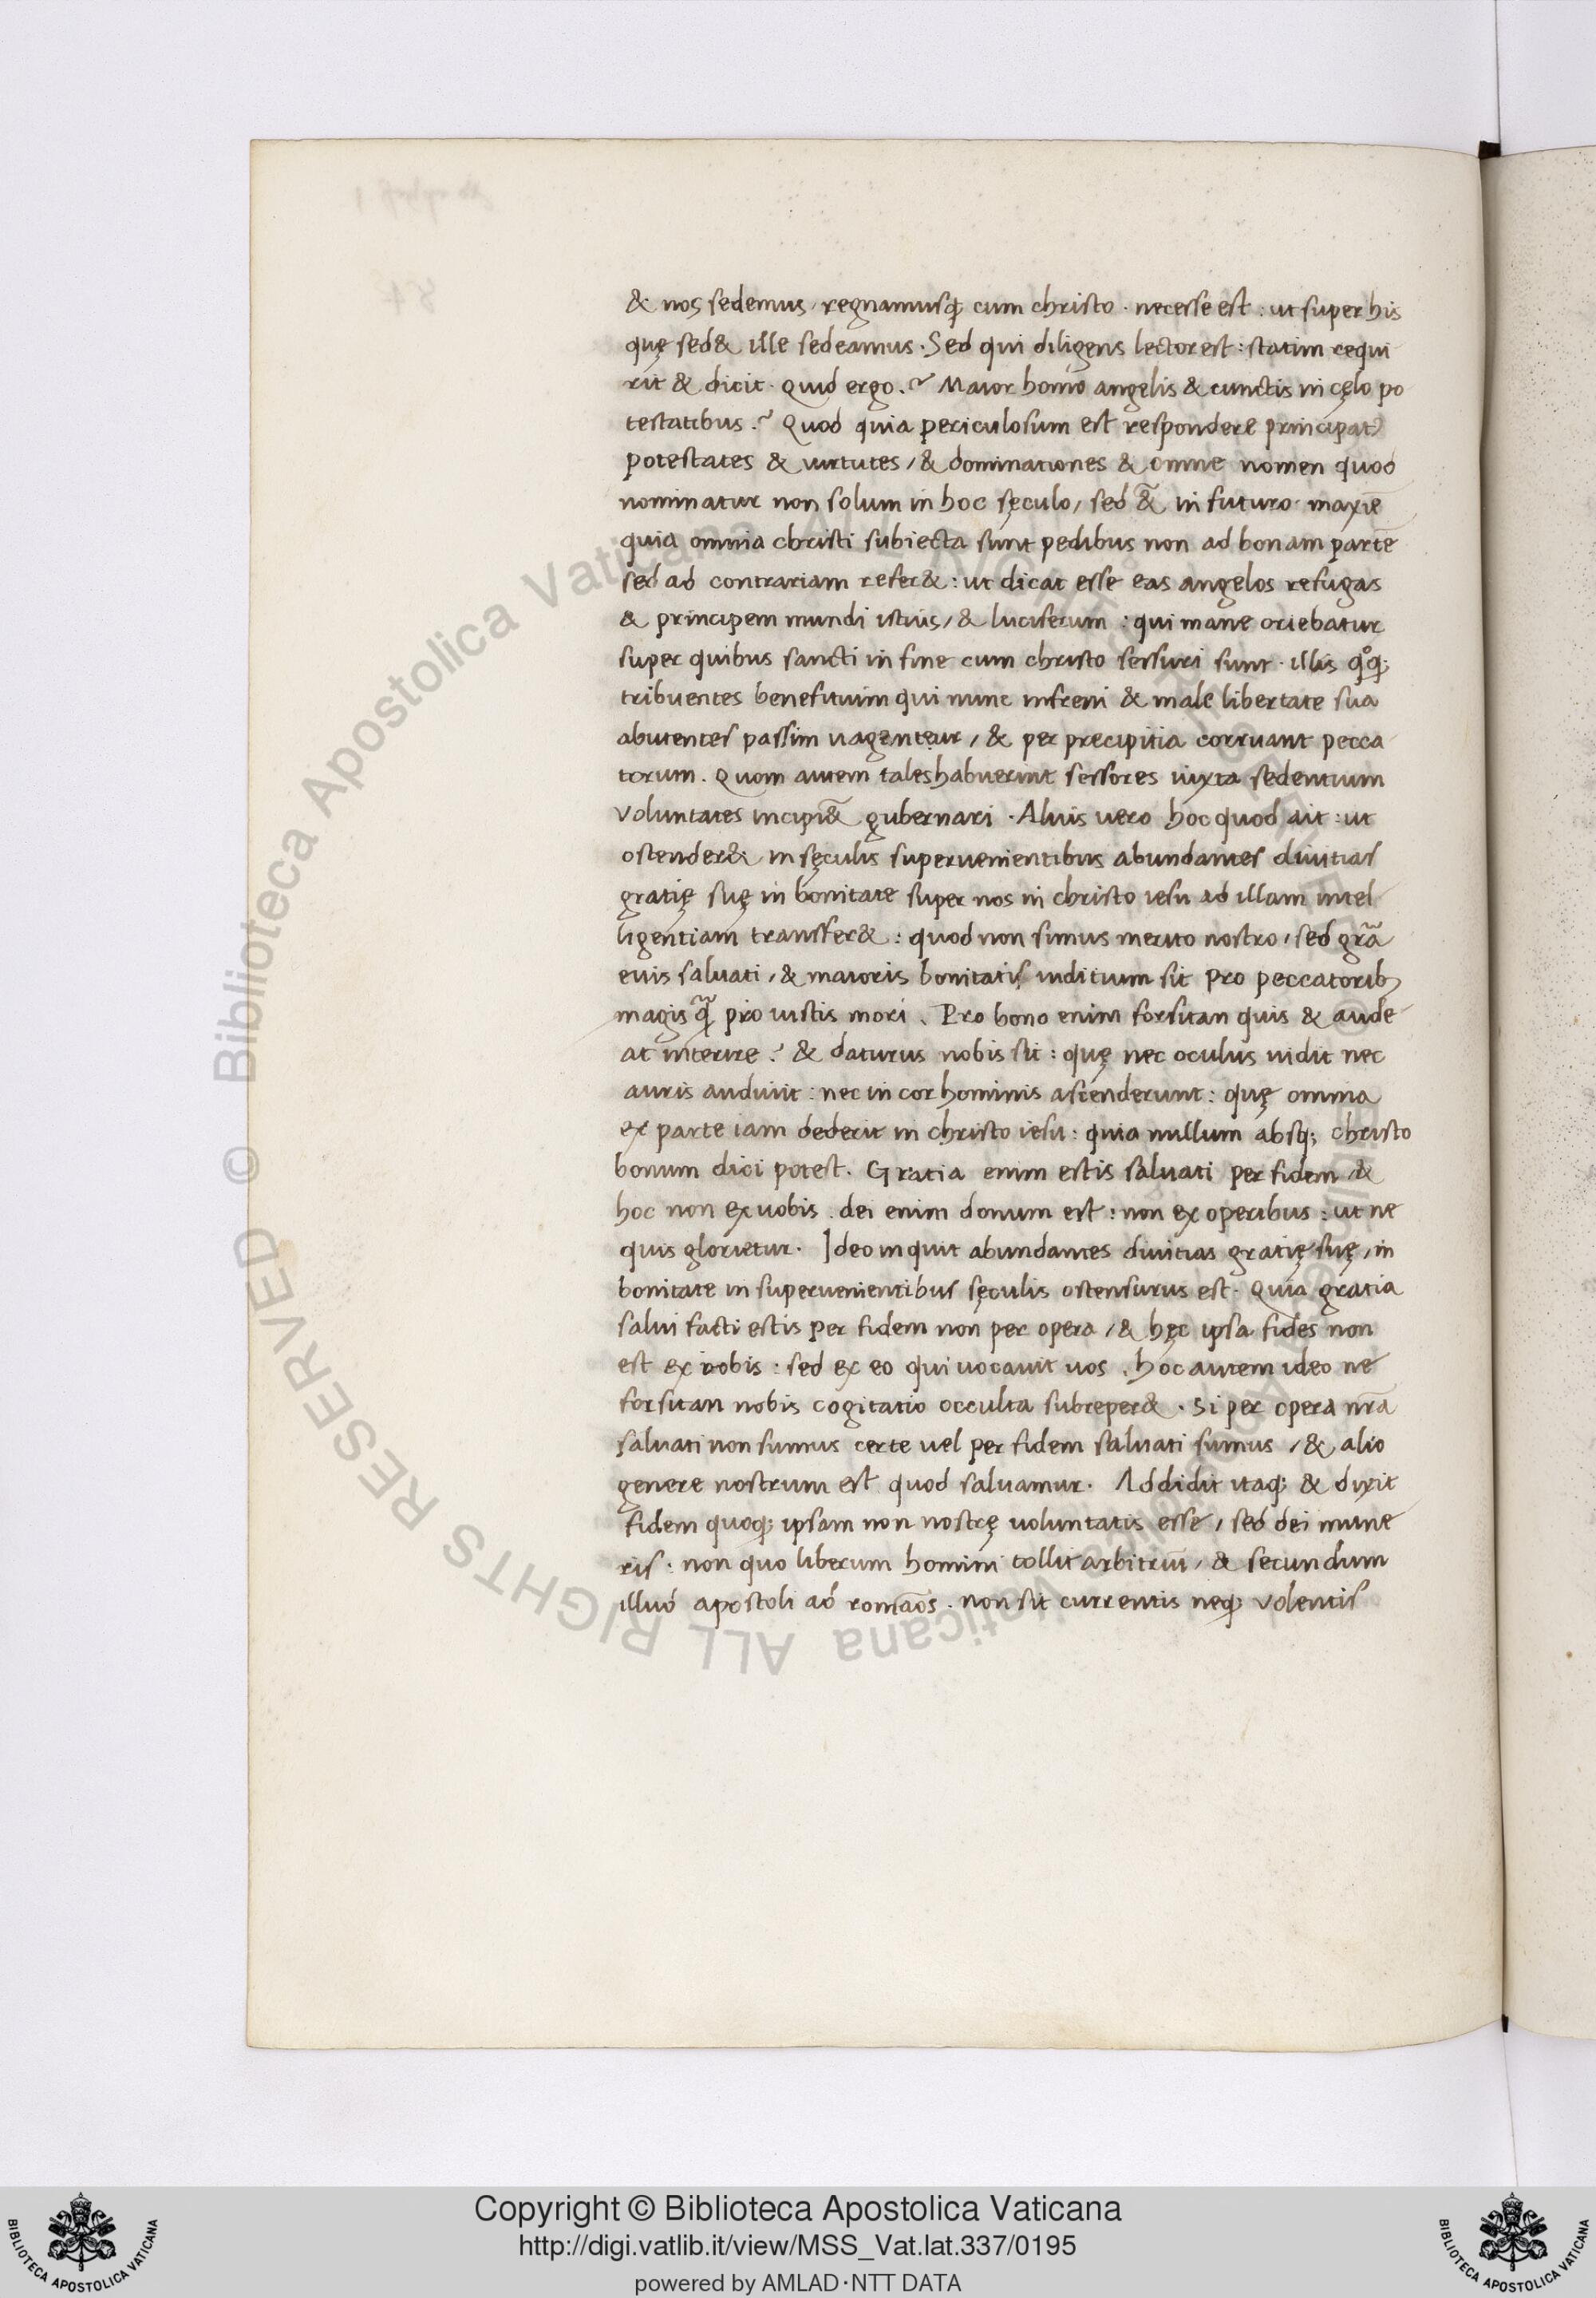 & nos sedemus, regnamusq; cum christo · necesse est : ut super his
quę sed& ille sedeamus · Sed qui diligens lector est : statim requi
rit & dicit · Quid ergo ? Maior homo angelis & cunctis in cęlo po
testatibus ? Quod quia periculosum est respondere principat
potestates & uirtutes, & dominationes & omne nomen quod
nominatur non solum in hoc sęculo, sed &̃ in futuro · maxīe
quia omnia christi subiecta sunt pedibus non ad bonam partē
sed ad contrariam refer& : ut dicat esse eas angelos refugas
& principem mundi istius, & luciferum : qui mane oriebatur
super quibus sancti in fine cum christo sessuri sunt · illis qͦq;
tribuentes benefitium qui nunc infreni & male libertate sua
abutentes passim uagentur, & per precipitia corruant pecca
torum . Quom autem tales habuerint sessores iuxta sedentium
voluntates incipi&̃ gubernari · Aluis uero hoc quod ait : ut
ostender& in sęculis superuenientibus abundantes diuitias
gratię suę in bonitate super nos in christo iesu ad illam intel
ligentiam transfer& : quod non simus merito nostro, sed gr̃a
euis saluati, & maioris bonitatis inditium sit pro peccatorib;
magis q̃ pro iustis mori . Pro bono enim forsitan quis & aude
at interire ? & daturus nobis sit : quę nec oculus uidit nec
auris audiuit : nec in cor hominis ascenderunt : quę omnia
ex parte iam dederit in christo iesu : quia nullum absq; christo
bonum dici potest . Gratia enim estis saluati per fidem &
hoc non ex uobis . dei enim donum est : non ex operibus : ut ne
quis glorietur . Ideo inquit abundantes diuitias gratię suę, in
bonitate in superuenientibus sęculis ostensurus est · Quia gratia
salui facti estis per fidem non per opera, & hęc ipsa fides non
est ex uobis : sed ex eo qui uocauit uos . hoc autem ideo ne
forsitan nobis cogitatio occulta subreper& . Si per opera nr̃a
saluati non sumus certe uel per fidem saluati sumus, & alio
genere nostrum est quod saluamur . Addidit itaq; & dixit
fidem quoq; ipsam non nostrę uoluntatis esse, sed dei mune
ris : non quo liberum homini tollit arbitriū, & secundum
illud apostoli ad romāos . non sit currentis neq; volentis
© Biblioteca Apostolica Vaticana ALL RIGHTS RESERVED
Copyright © Biblioteca Apostolica Vaticana
http://digi.vatlib.it/view/MSS_Vat.lat.337/0195
powered by AMLAD·NTT DATA
BIBLIOTECA APOSTOLICA VATICANA
BIBLIOTECA APOSTOLICA VATICANA